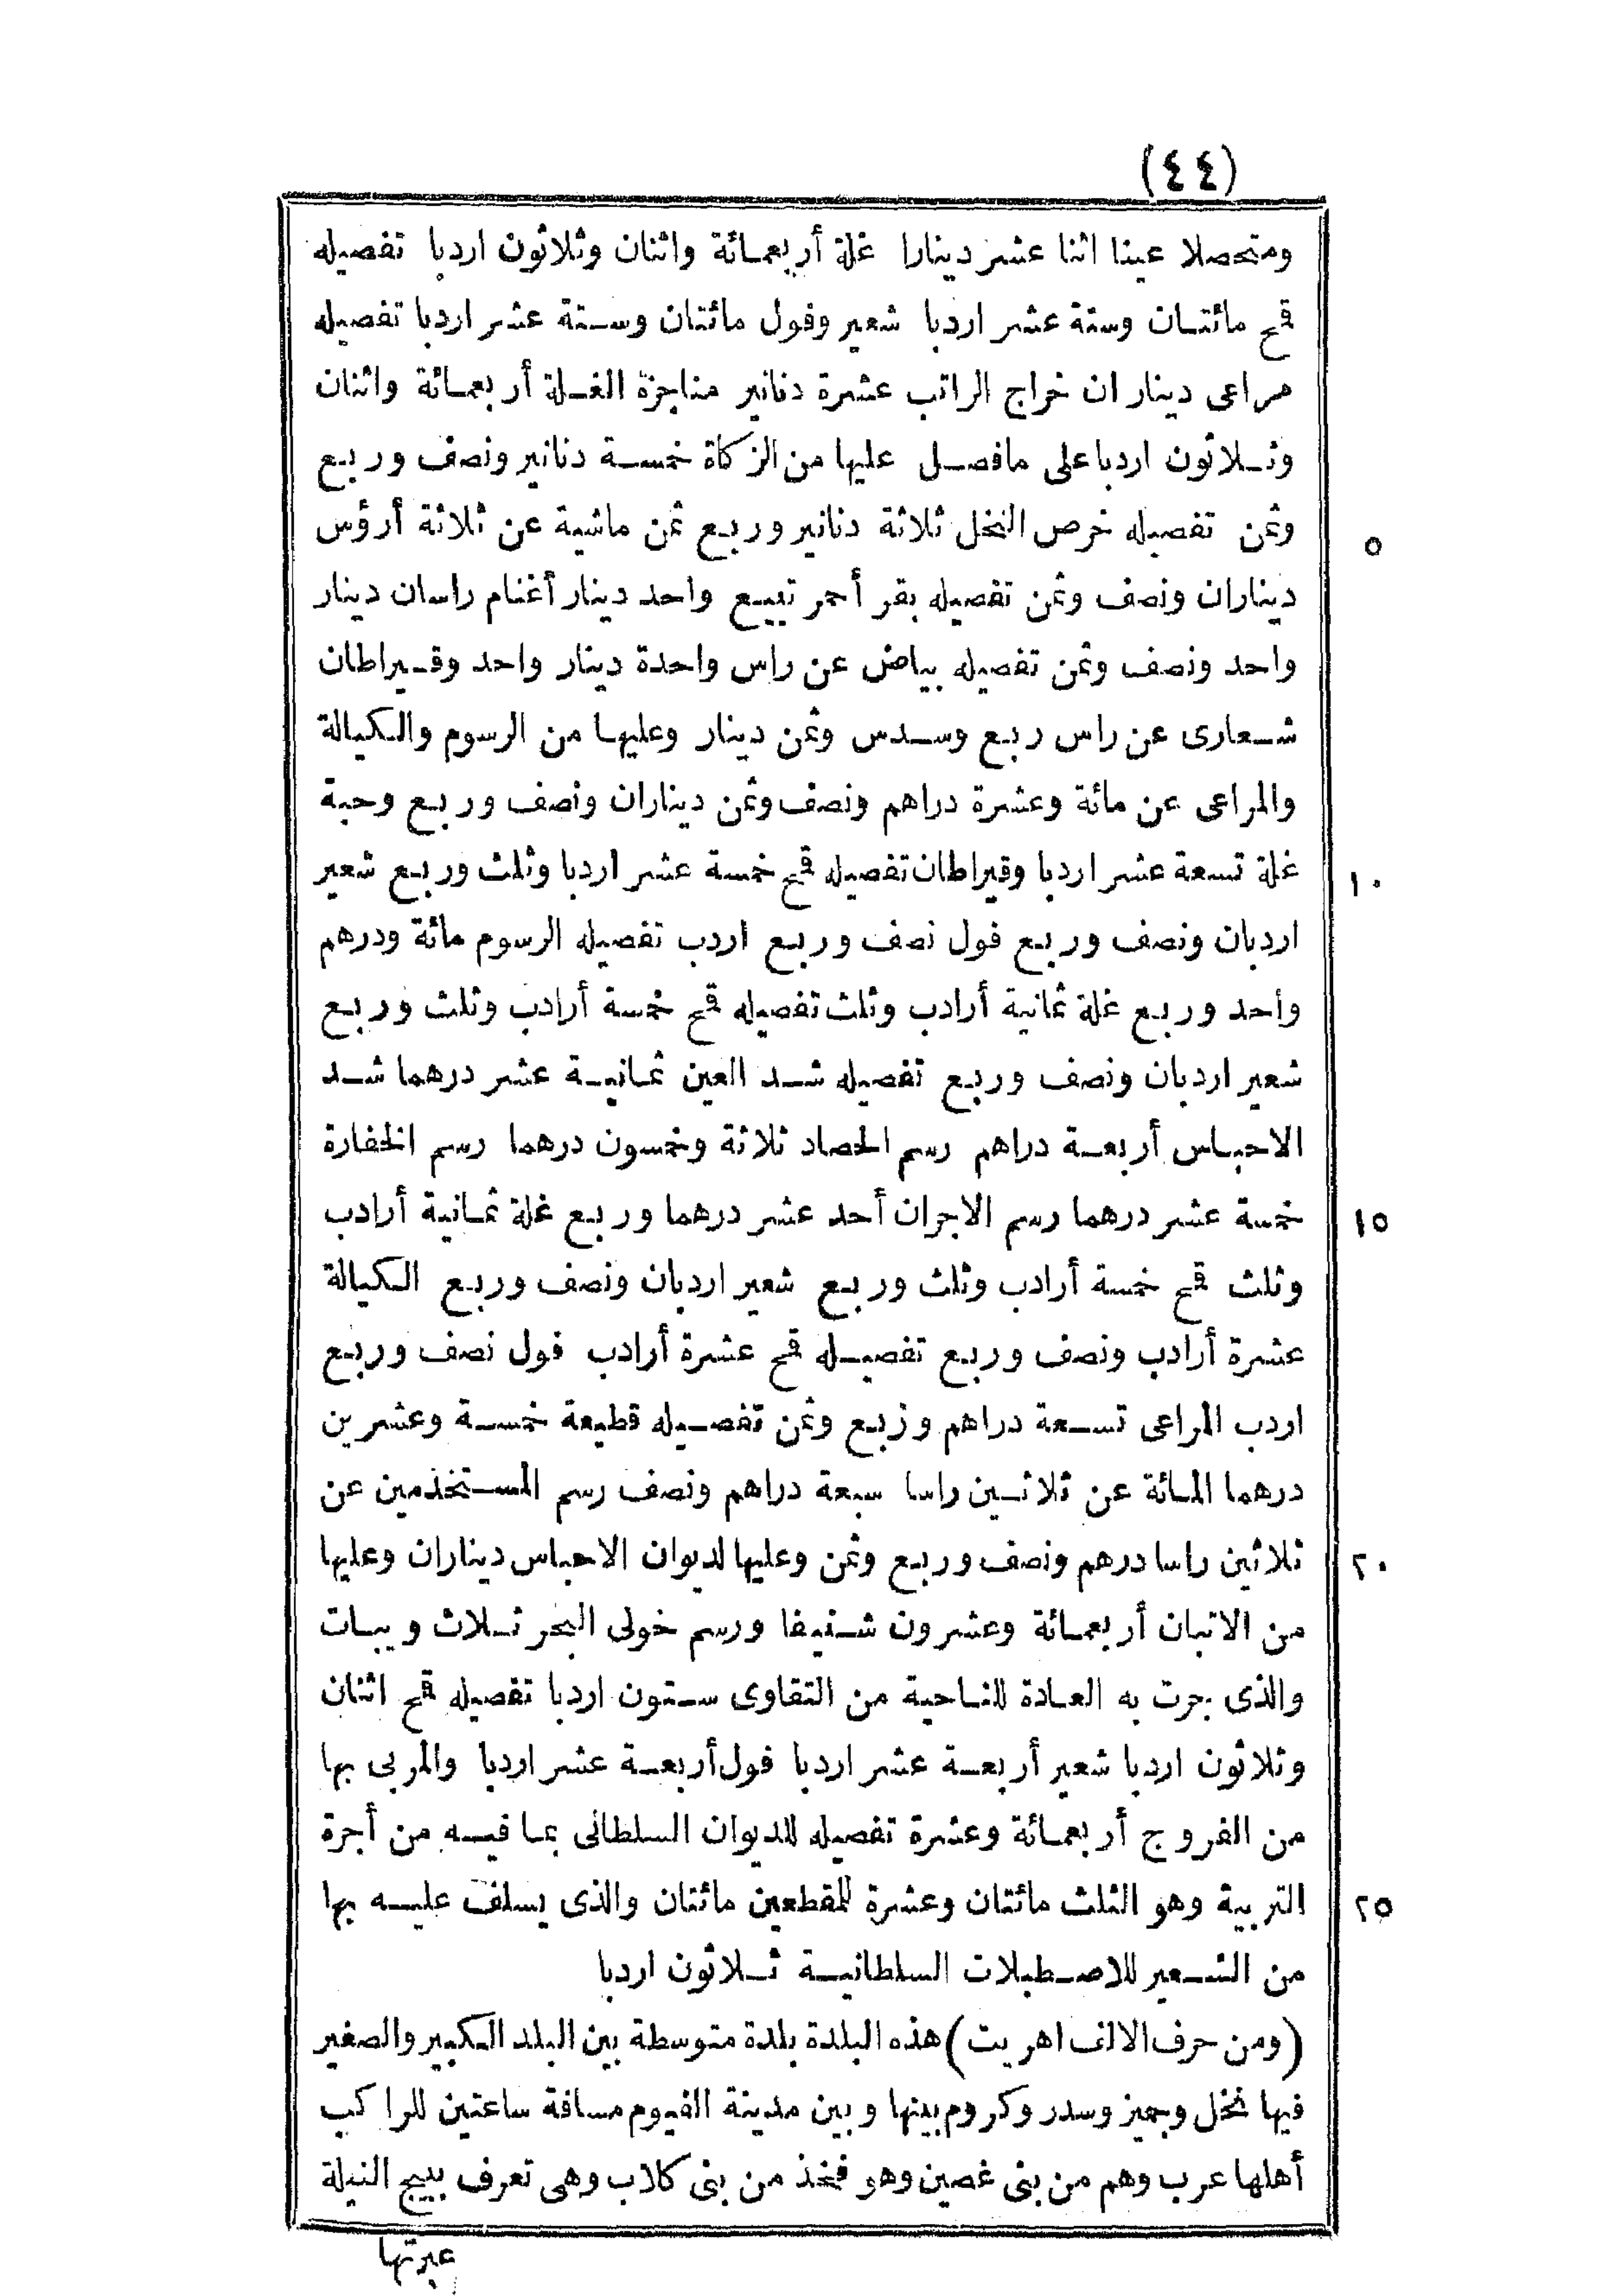 (٤٤)
ومتحصلا عينا اثنا عشر دينارا غلة أربعمائة واثنان وثلاثون اردبا تفصيله
قمح مائتان وستة عشر اردبا شعير وفول مائتان وستة عشر اردبا تفصيله
مراعى ديناران خراج الراتب عشرة دنانير مناجزة الغلة أربعمائة واثنان
وثلاثون اردبا على مافصل عليها من الزكاة خمسة دنانير ونصف وربع
وثمن تفصيله خرص النخل ثلاثة دنانير وربع ثمن ماشية عن ثلاثة أرؤس
٥
ديناران ونصف وثمن تفصيله بقر أحمر تبيع واحد دينار أغنام راسان دينار
واحد ونصف وثمن تفصيله بياض عن راس واحدة دينار واحد وقيراطان
شعارى عن راس ربع وسدس وثمن دينار وعليها من الرسوم والكيالة
والمراعى عن مائة وعشرة دراهم ونصف وثمن ديناران ونصف وربع وحبة
غلة تسعة عشر اردبا وقيراطان تفصيله قمح خمسة عشر اردبا وثلث وربع شعير
١٠
اردبان ونصف وربع فول نصف وربع اردب تفصيله الرسوم مائة ودرهم
واحد وربع غلة ثمانية أرادب وثلث تفصيله قمح خمسة أرادب وثلث وربع
شعير اردبان ونصف وربع تفصيله شد العين ثمانية عشر درهما شد
الاحباس أربعة دراهم رسم الحصاد ثلاثة وخمسون درهما رسم الخفارة
خمسة عشر درهما رسم الاجران أحد عشر درهما وربع غلة ثمانية أرادب
١٥
وثلث قمح خمسة أرادب وثلث وربع شعير اردبان ونصف وربع الكيالة
عشرة أرادب ونصف وربع تفصيله قمح عشرة أرادب فول نصف وربع
اردب المراعى تسعة دراهم وربع وثمن تفصيله قطيعة خمسة وعشرين
درهما المائة عن ثلاثين راسا سبعة دراهم ونصف رسم المستخدمين عن
ثلاثين راسا درهم ونصف وربع وثمن وعليها لديوان الاحباس ديناران وعليها
٢٠
من الاتبان أربعمائة وعشرون شنيفا ورسم خولى البحر ثلاث ويبات
والذى جرت به العادة للناحية من التقاوى ستون اردبا تفصيله قمح اثنان
وثلاثون اردبا شعير أربعة عشر اردبا فول أربعة عشر اردبا والمربى بها
من الفروج أربعمائة وعشرة تفصيله للديوان السلطانى بما فيه من أجرة
التربية وهو الثلث مائتان وعشرة للمقطعين مائتان والذى يسلف عليه بها
٢٥
من الشعير للاصطبلات السلطانية ثلاثون اردبا
(ومن حرف الالف اهريت) هذه البلدة بلدة متوسطة بين البلد الكبير والصغير
فيها نخل وجميز وسدر وكروم بينها وبين مدينة الفيوم مسافة ساعتين للراكب
أهلها عرب وهم من بنى غصين وهو فخذ من بنى كلاب وهى تعرف ببيج النيلة
عبرتها